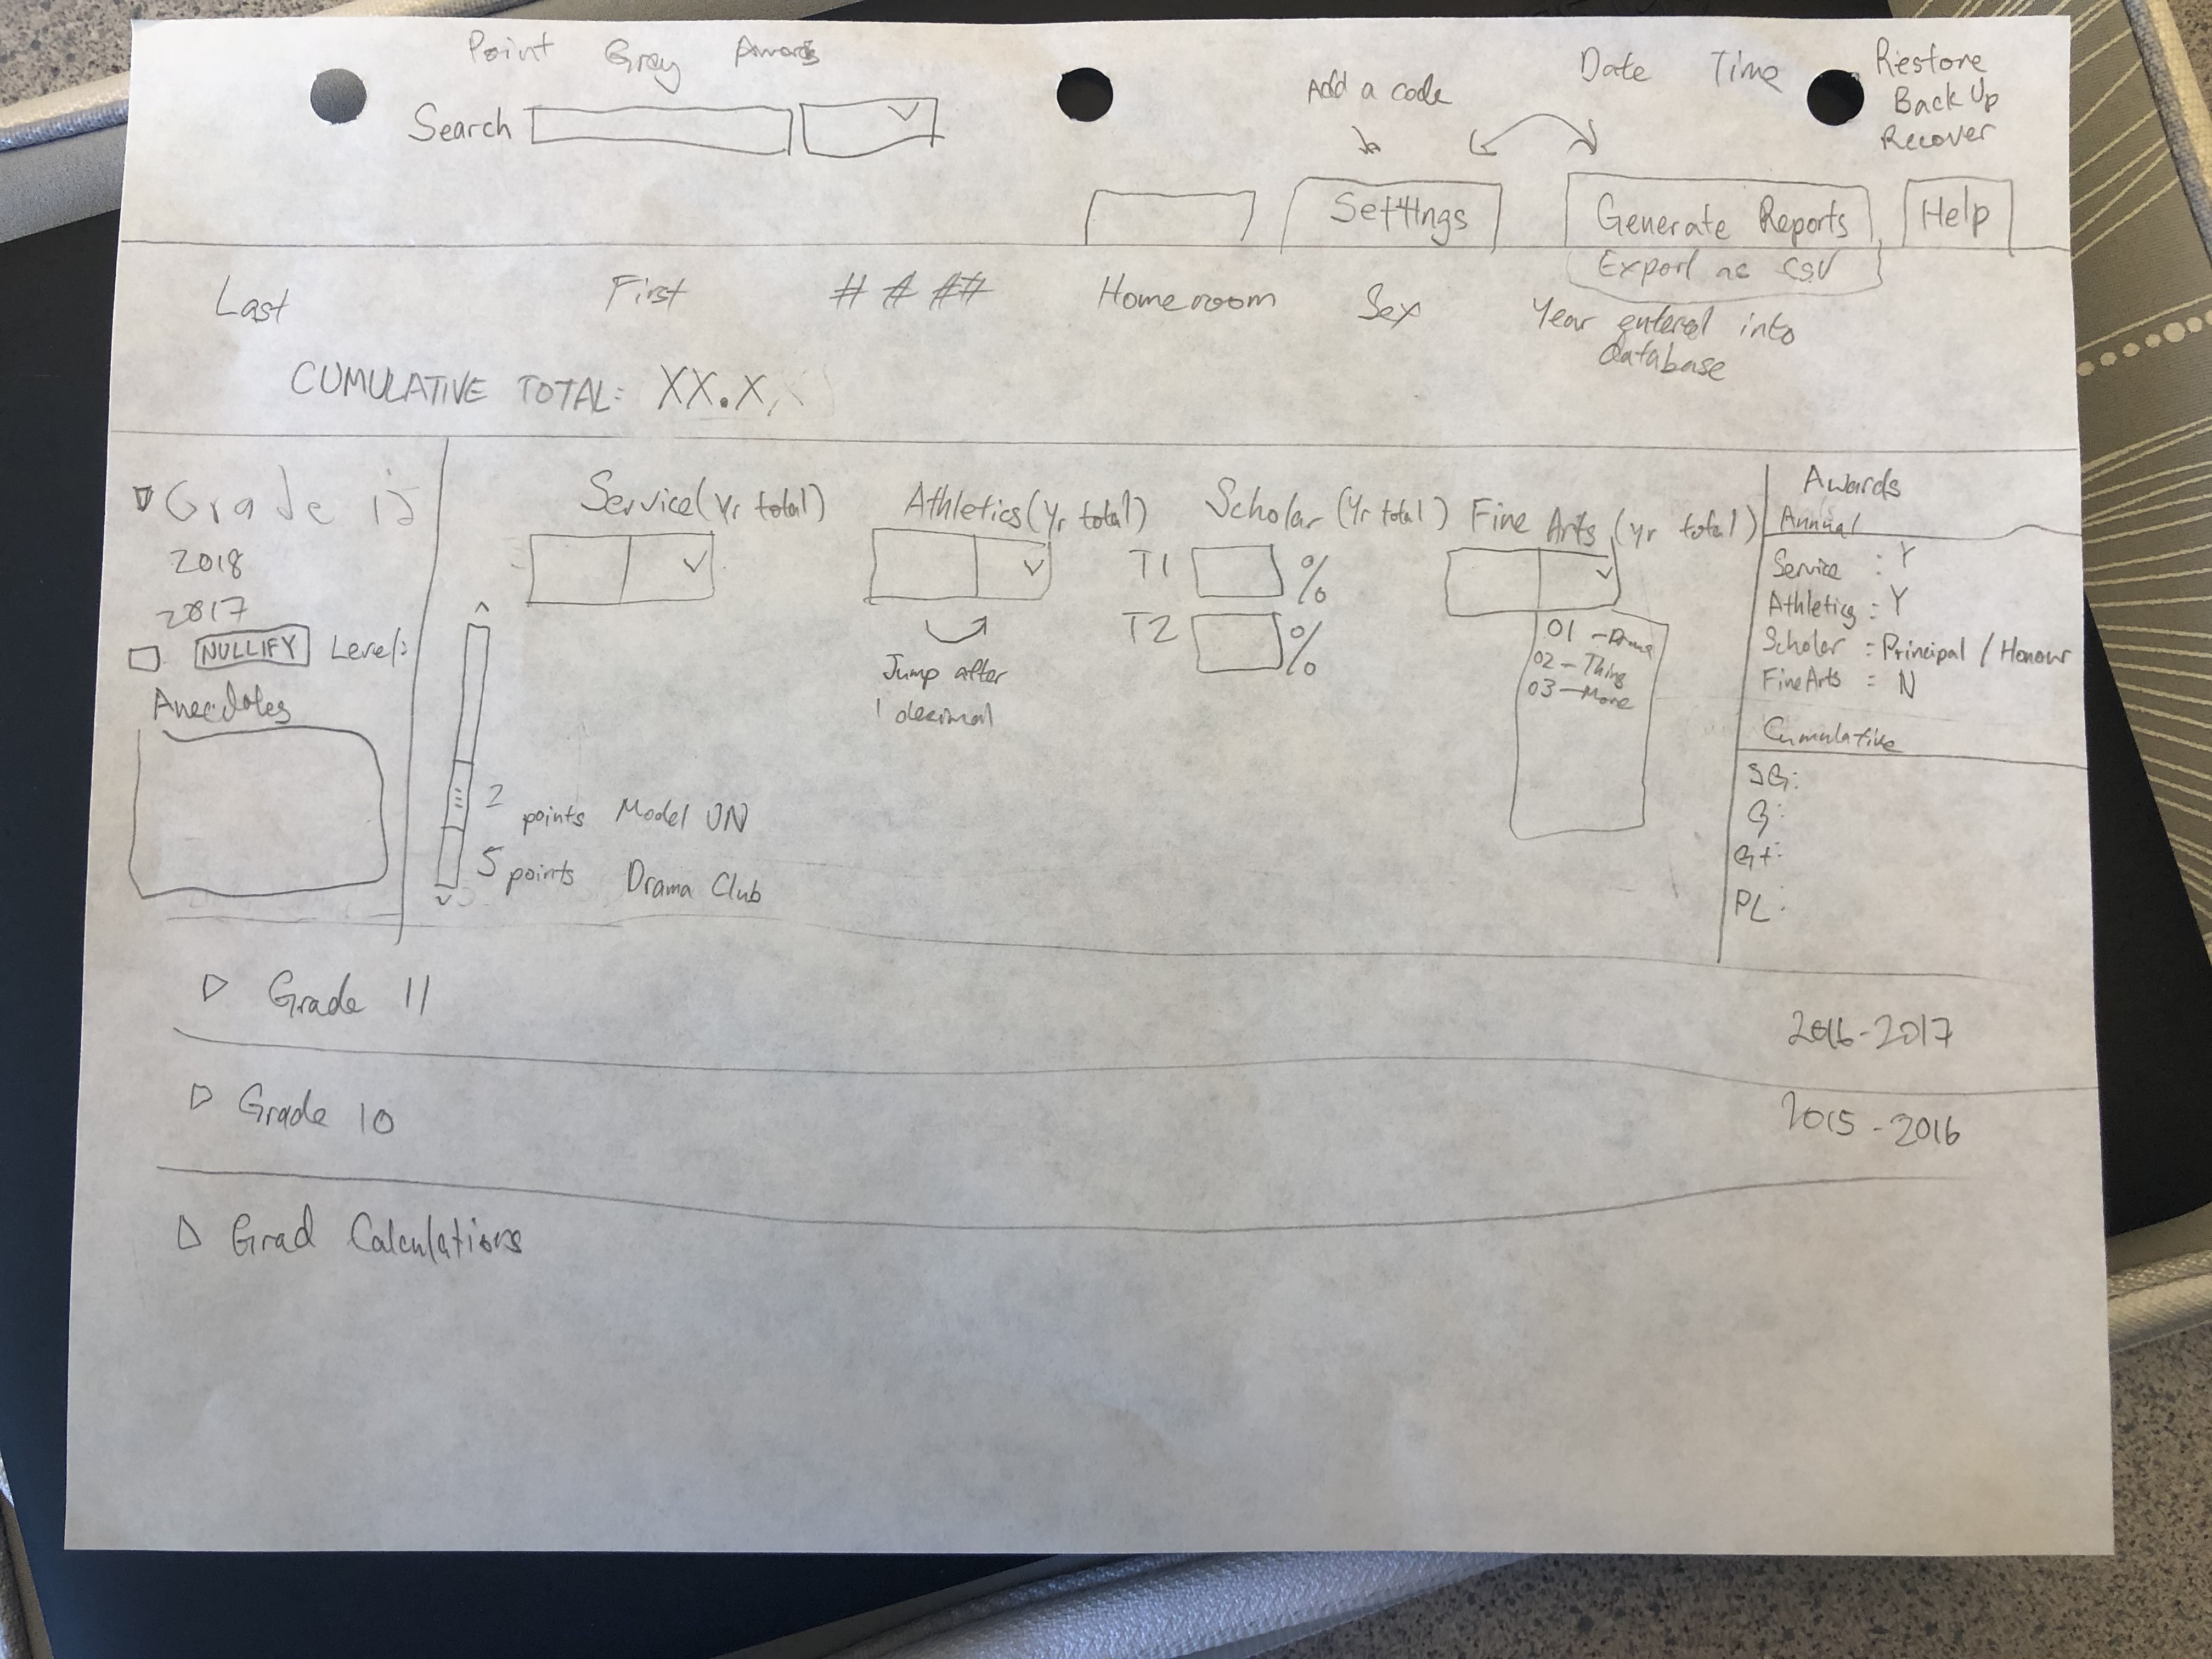 Point Grey Awards
Search
Add a code
Date Time
Restore
Back Up
Recover
Settings
Generate Reports
Help
Export as CSV
Last First # # ## Homeroom Sex Year entered into
database
CUMULATIVE TOTAL: XX.X
Grade 12
2018
2017
NULLIFY Level:
Anecdotes
Service (Yr total)
Athletics (Yr total)
Jump after
1 decimal
Scholar (Yr total)
T1 %
T2 %
Fine Arts (yr total)
01 - Drama
02 - Thing
03 - More
2 points Model UN
5 points Drama Club
Awards
Annual
Service : Y
Athletics : Y
Scholar : Principal / Honour
Fine Arts : N
Cumulative
SG:
G:
G+:
PL:
Grade 11 2016-2017
Grade 10 2015-2016
Grad Calculations